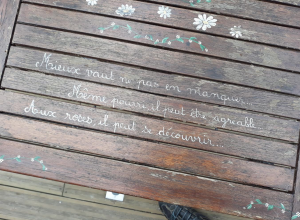 Mieux vaut ni pas en manquer...
Même pourri il peut être agréable...
Aux roses, il peut se découvrir...